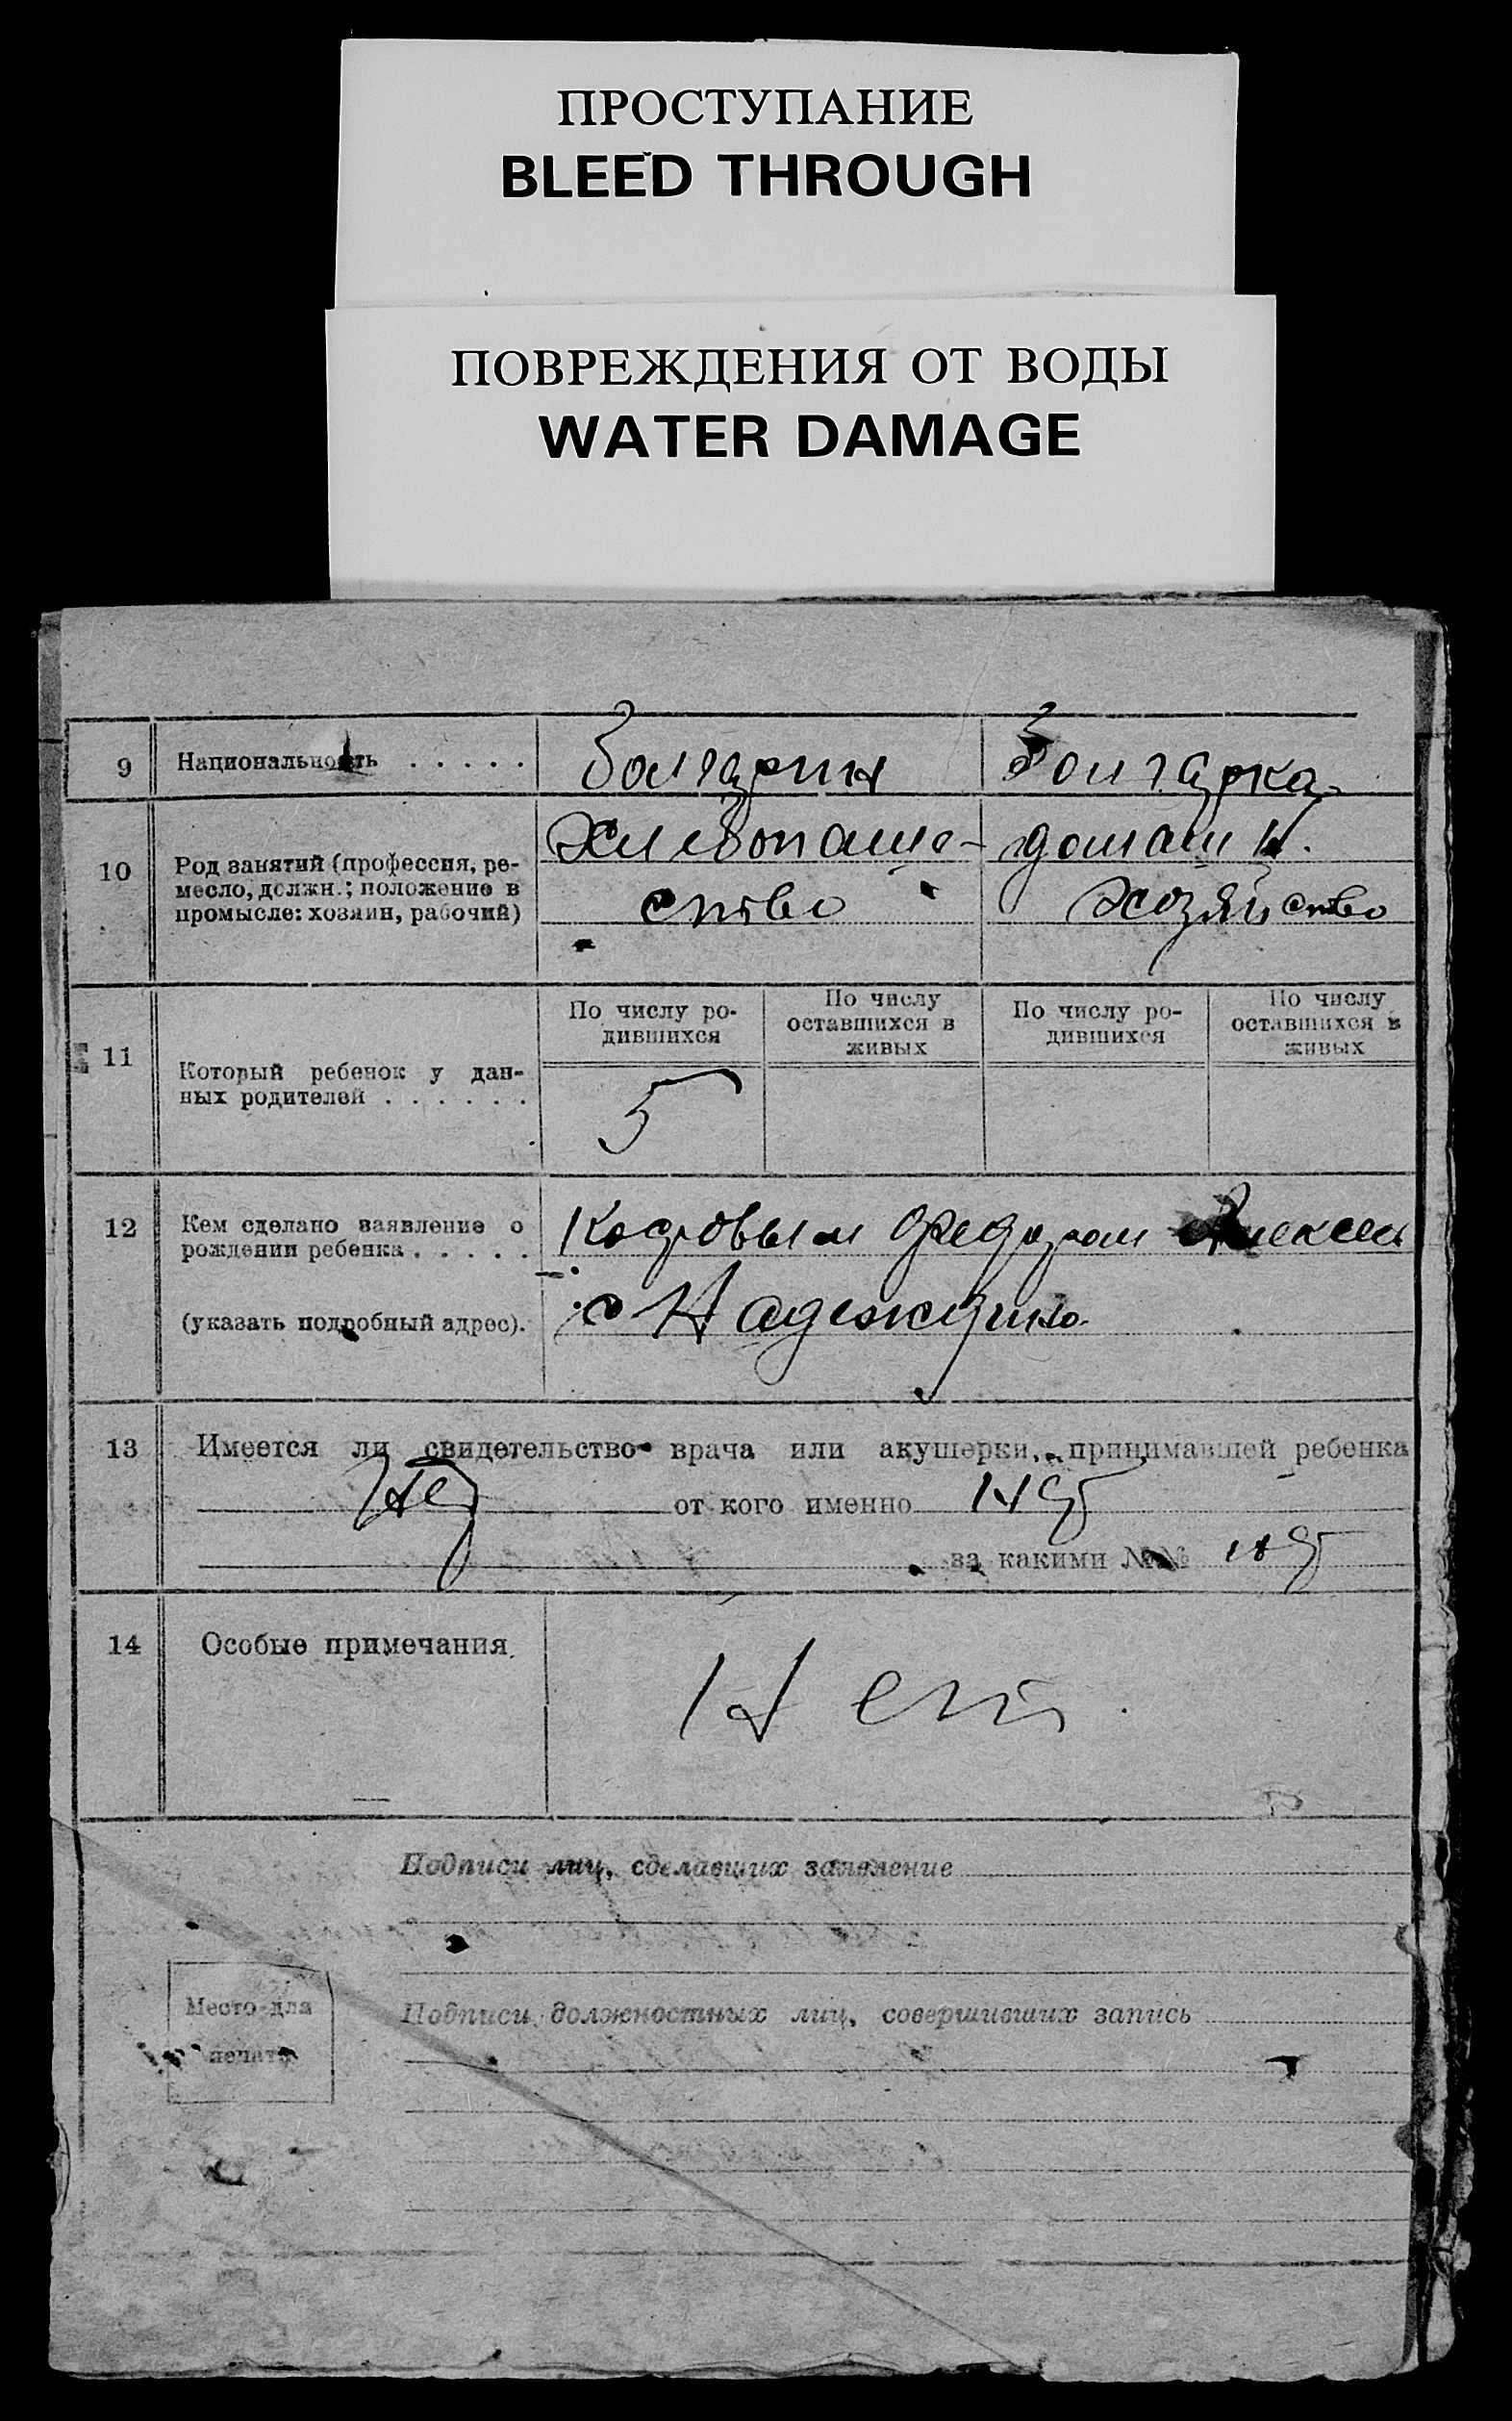 ПРОСТУПАНИЕ
BLEED THROUGH
ПОВРЕЖДЕНИЯ ОТ ВОДЫ
WATER DAMAGE
9 Национальность . . . . . Болгарин Болгарка
10 Род занятий (профессия, ре-
месло, должн.; положение в
промысле: хозяин, рабочий)
Хлебопаше-
ство
домашн.
хозяйство
11 Который ребенок у дан-
ных родителей . . . . . .
По числу ро-
дившихся
По числу
оставшихся в
живых
По числу ро-
дившихся
По числу
оставшихся в
живых
5
12 Кем сделано заявление о
рождении ребенка . . . . .
(указать подробный адрес).
Федором Алексеев
с Надеждино
13 Имеется ли свидетельство врача или акушерки, принимавшей ребенка
Нет от кого именно Нет
за какими №№ нет
14 Особые примечания. Нет.
Подписи лиц, сделавших заявление
Место для
печати
Подписи должностных лиц, совершивших запись